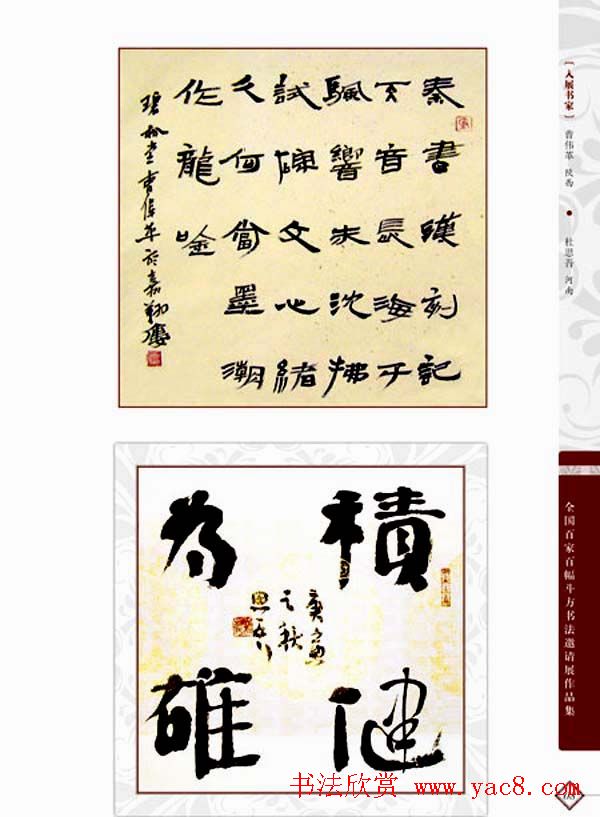 秦書漢刻記
音長海于
飄響未沈拂
試陳文心緒
久何當墨潮
作龍唫
曹偉革於嘉翔樓
積健
為雄
庚寅
之秋
思吾
[入展书家] 曹伟革 陕西 • 杜思吾 河南
全国百家百幅斗方书法邀请展作品集
书法欣赏 www.yac8.com